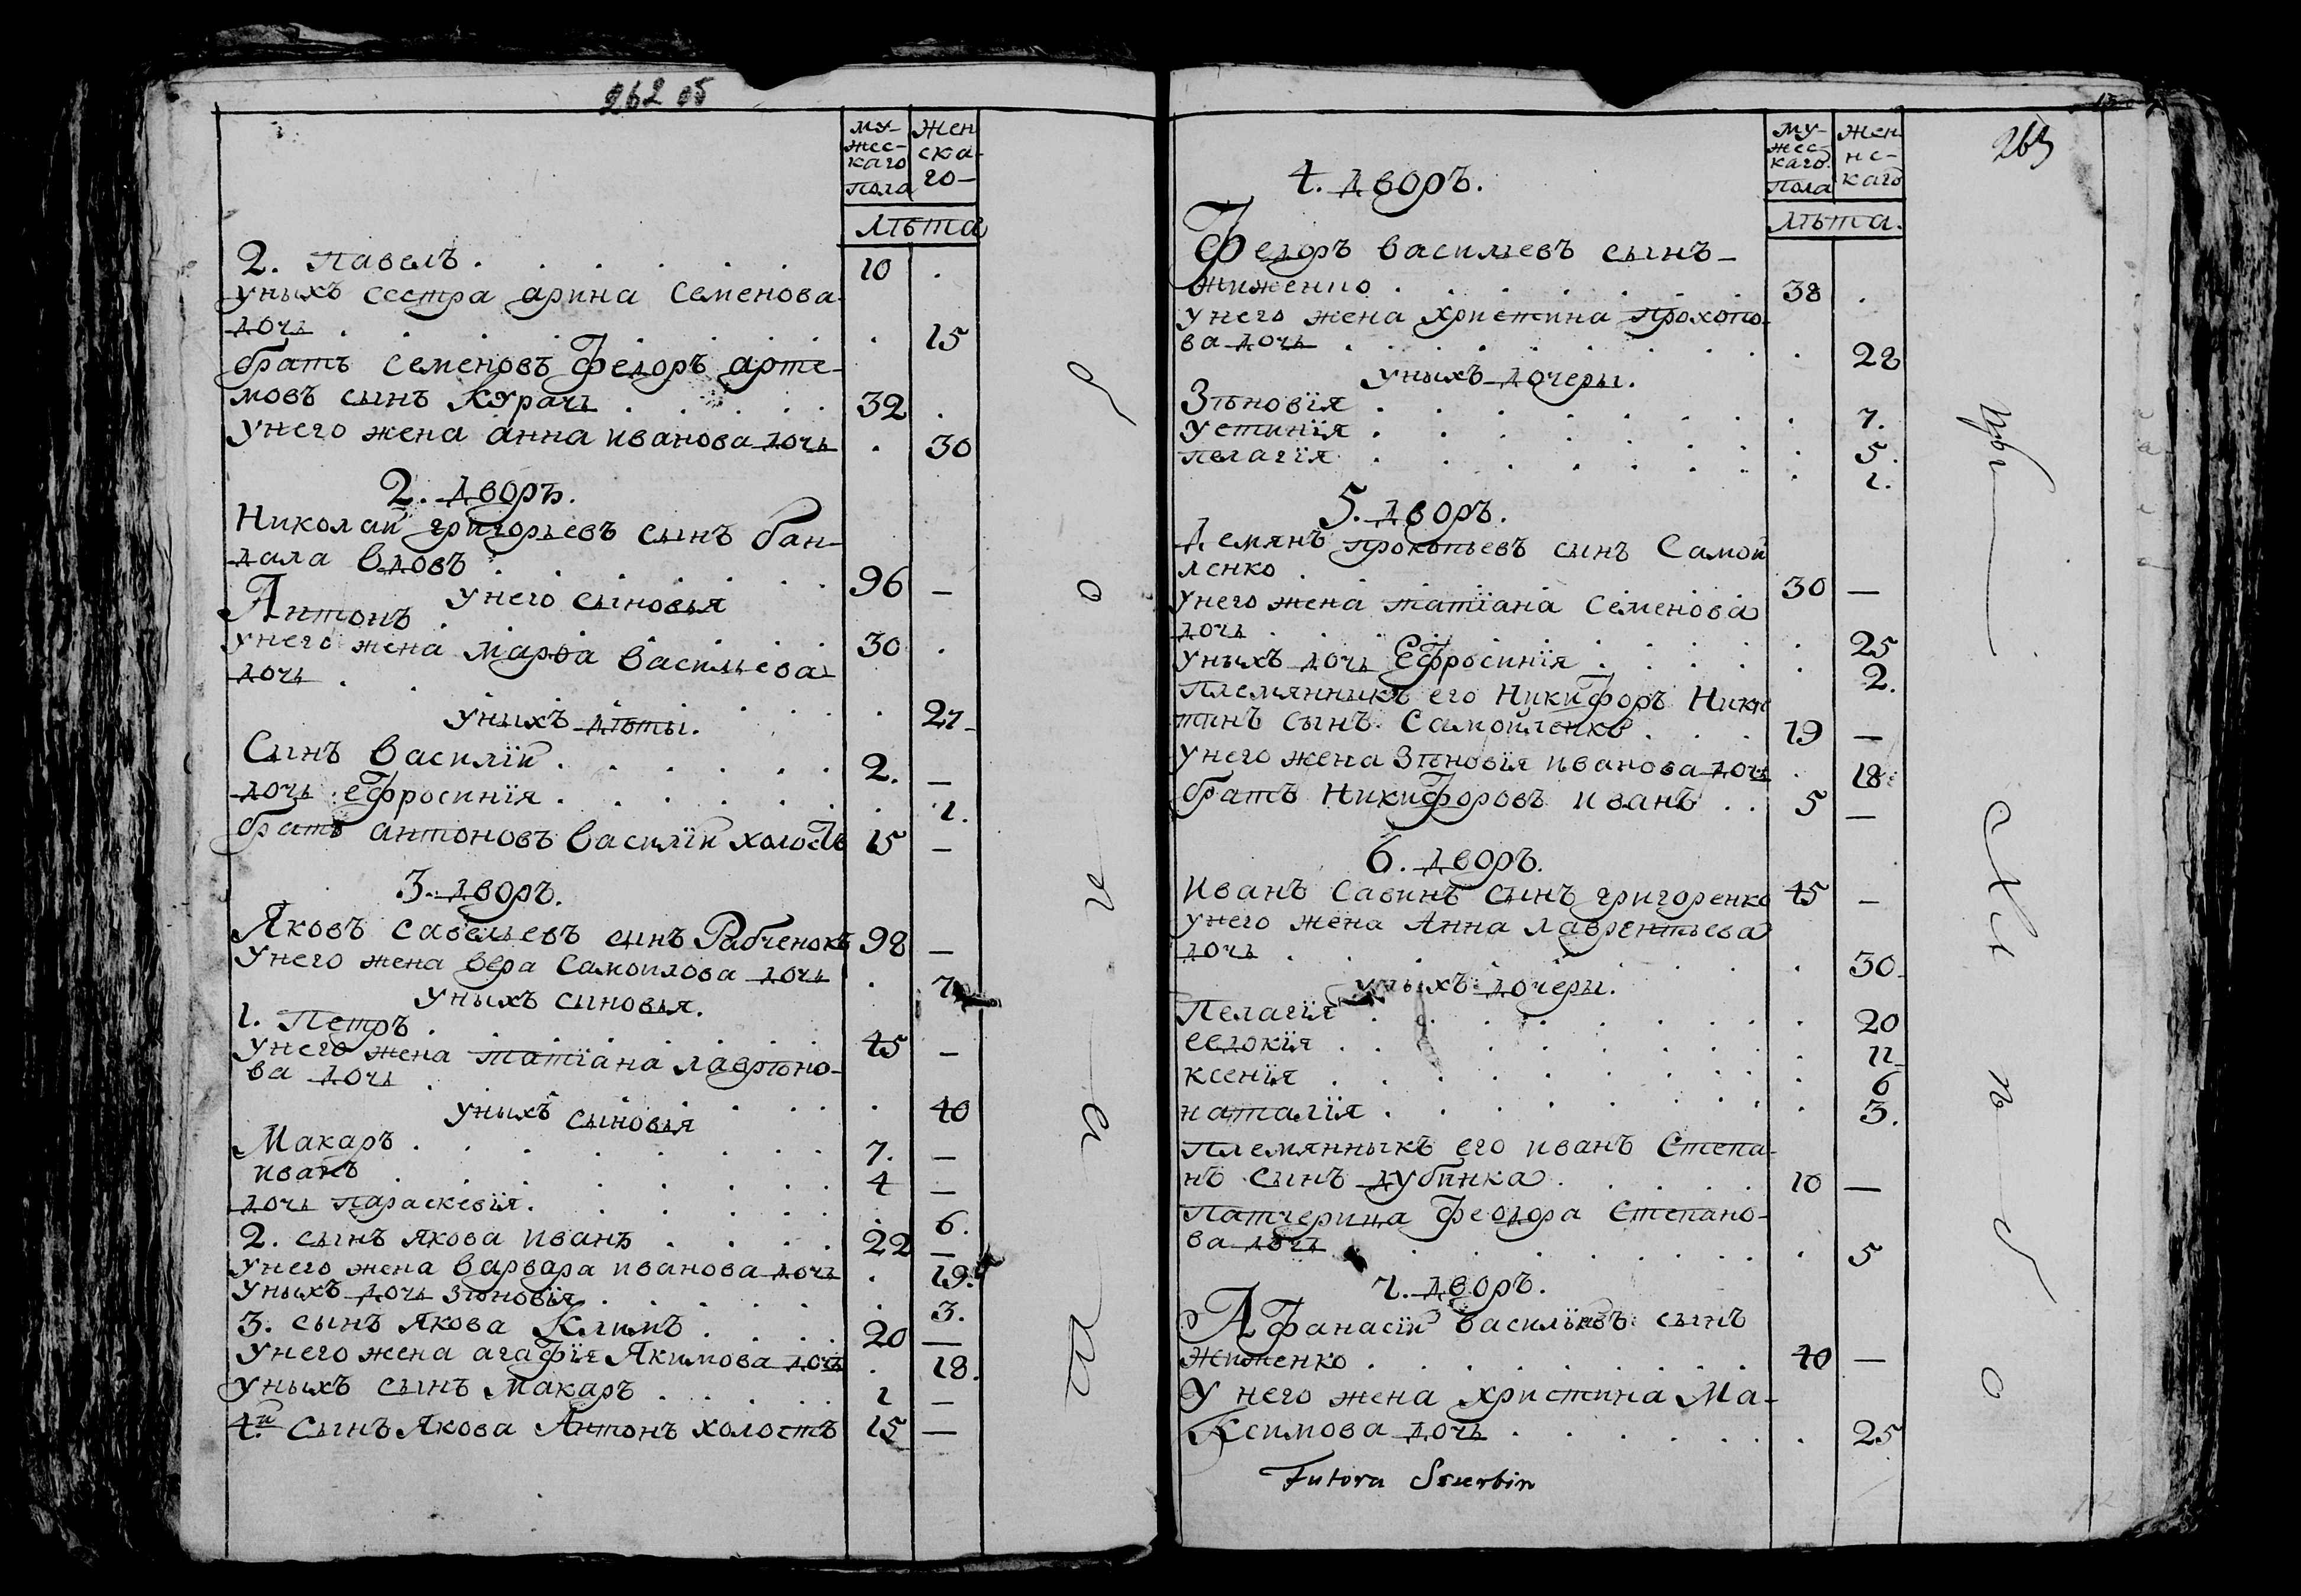 262 об
му- жен
жес- ска-
каго го-
пола
лѣта
2. павелъ . 10 .
унихъ сестра арина Семенова
дочь . . 15
братъ семеновъ Федоръ арте-
мовъ сынъ Курачъ . 32 .
унего жена анна иванова дочь . 30
2. дворъ.
Николай григорьевъ сынъ бан-
дала вдовъ . 96 —
унего сыновья
Антонъ . 30 .
унего жена марѳа васильева
дочь . . 27
уныхъ дѣты.
Сынъ василїй . 2. —
дочь ефросинїя . . 1.
братъ антоновъ василїй холостъ 15 —
3. дворъ.
Яковъ савельевъ сынъ Рабченокъ 98 —
унего жена вера самоилова дочь .
уныхъ синовья.
1. Петръ . 45 —
унего жена татїана лаврѣно-
ва дочь . . 40
уныхъ сыновья
Макаръ . 7. —
иванъ . 4 —
дочь параскевїя . . 6.
2. сынъ якова иванъ . 22 —
унего жена варвара иванова дочь . 19.
уныхъ дочь зѣновїя . . 3.
3. сынъ якова Климъ . 20 —
унего жена агафїя Якимова дочь . 18.
уныхъ сынъ макаръ . 1 —
4й сынъ Якова Антонъ холостъ 15 —
263
му- жен
жес- нс-
каго каго
пола
лѣта.
4. дворъ.
Федоръ васильевъ сынъ
жиженко . 38 .
унего жена христина прокопо-
ва дочь . . 28
уныхъ дочеры.
Зѣновїя . . 7.
устинїя . . 5.
пелагїя . . 1.
5. дворъ.
Демянъ прокопьевъ сынъ Самой
ленко . 30 —
унего жена татїана семенова
дочь . . 25
уныхъ дочь Ефросинїя . . 2.
племянныкъ его Никифоръ Ники
тинъ сынъ Самойленко . 19 —
унего жена Зѣновїя иванова дочь . 18.
братъ Никифоровъ иванъ . . 5 —
6. дворъ.
иванъ Савинъ сынъ григоренко 45 —
унего жена Анна лаврентьева
дочь . . 30
уныхъ дочеры.
Пелагїя . . 20
евдокїя . . 11
ксенїя . . 6
наталїя . . 3.
племянныкъ его иванъ Степа-
нъ сынъ дубинка . 10 —
патчерица феодора Степано-
ва дочь . . 5
7. дворъ.
Афанасїй васильевъ сынъ
жиженко . 40 —
У него жена христина Ма-
ксимова дочь . . 25